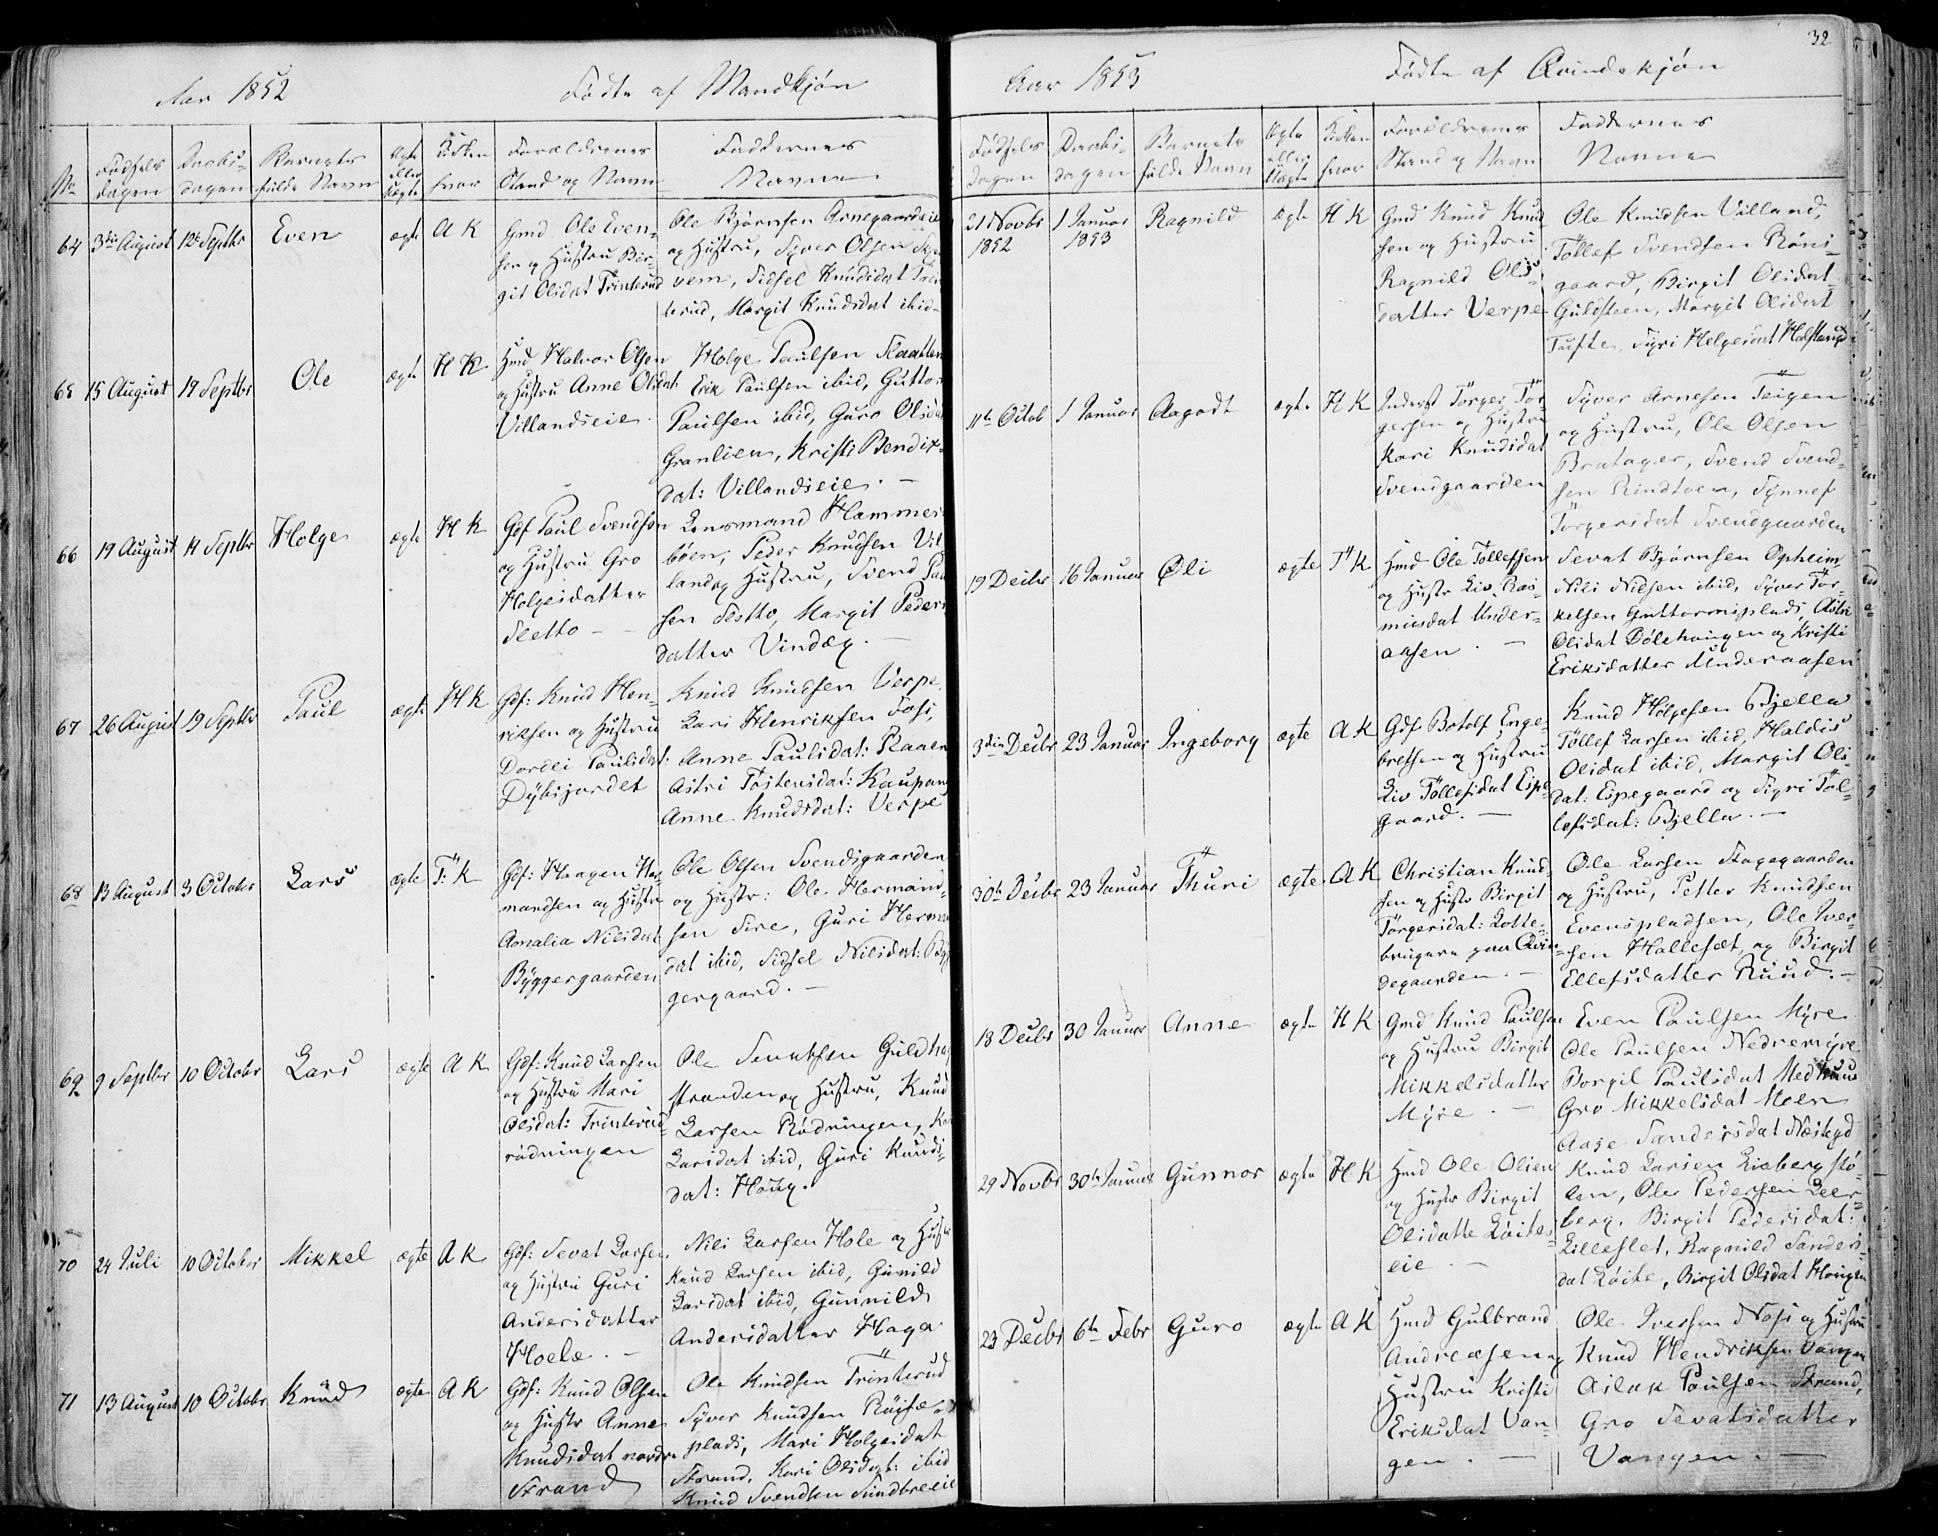 32
Aar 1852
Fødte af Mandkjøn
No
Fødsels
dagen
Daabs-
dagen
Barnets
fulde Navn
Ægte
eller
uægte
Kirken
hvor
Forældrenes
Stand og Navn
Faddernes
Navne
64
3die August
12te Septbr
Even
ægte
A K
Gmd Ole Even-
sen og Hustru Bir-
git Olsdat Trinterud
Ole Bjørnsen Arnegaardeie
og Hustru, Syver Olsen
vem, Sidsel Knudsdat Trin
terud, Margit Knudsdat ibid-
65
15 August
19 Septbr
Ole
ægte
H K
Hmd Halvor Olsen
og Hustru Anne Olsdat
Villandseie.
Holge Paulsen Slaatten
Erik Paulsen ibid, Guttor
Paulsen ibid, Guro Olsdat
Granlien, Kristi Bendix-
dat: Villandseie. —
66
19 August
19 Septbr
Holge
ægte
H K
Gdf Paul Svendsen
og Hustru Gro
Holgesdatter
Sletto —
Lensmand Hammers
bøen, Peder Knudsen Vil
land og Hustru, Svend Pau
sen Sletto, Margit Peders
datter Vindeg. —
67
26 August
19 Septbr
Paul
ægte
H K
Gdf: Knud Hen-
riksen og Hustru
Dordei Paulsdat:
Dybsjordet
Knud Knudsen Verpe,
Lars Henriksen Fosi,
Anne Paulsdat: Raaen
Astri Tostensdat: Kaupang
Anne Knudsdat: Verpe
68
13 August
3 October
Lars
ægte
T: K
Gdf: Haagen Her
mandsen og Hustru
Amalia Nilsdat
Byggergaarden
Ole Olsen Svendsgaarden
og Hustr: Ole Hermand-
sen Sire, Guri Herman
dat ibid, Sidsel Nilsdat: Byg
gergaard. —
69
9 Septbr
10 October
Lars
ægte
A K
Gdf: Knud Larsen
og Hustru Mari
Olsdat: Trinterud-
rødningen
Ole Sevatsen Guldha
stranden og Hustru, Knud
Larsen Rødningen, Kar
Larsdat ibid, Guri Knuds-
dat: Houg.
70
24 Juli
10 October
Mikkel
ægte
A K
Gdf: Sevat Larsen
og Hustru Guri
Andersdatter
Hoele. —
Nils Larsen Hole og Hustr
Knud Larsen ibid, Gunild
Larsdat ibid, Gunnild
Andersdatter Haga
71
13 August
10 October
Knud
ægte
A K
Gdf: Knud Olsen
og Hustr Anne
Knudsdat nordre
Strand
Ole Knudsen Trinterud
Syver Knudsen Røise-
plads, Mari Holgesdat
Strand, Kari Olsdat: ibid
Knud Svendsen Sundbreeie
Aar 1853
Fødte af Qvindekjøn
Fødsels
dagen
Daabs-
dagen
Barnets
fulde Navn
Ægte
eller
Uægte
Kirken
hvor
Forældrenes
Stand og Navn
Faddernes
Navne
21 Novbr
1852
1 Januar
1853
Ragnild
ægte
H K
Gmd Knud Knud
sen og Hustru
Ragnild Ols-
datter Verpe
Ole Knudsen Villand,
Tøllef Svendsen Røns-
gaard, Birgit Olsdat
Guldsteen, Margit Olsdat
Tufte, Sigri Helgesdat Halstensg
11te Octob
1 Januar
Aagodt
ægte
H K
Inderst Törger Tör-
gersen og Hustru
Kari Knudsdat
Svensgaarden
Syver Arnesen Teigen
og Hustru, Ole Olsen
Bratager, Svend Svend-
sen Rindtoen, Synnef
Törgersdat Svendsgaarden
19 Decbr
16 Januar
Øli
ægte
T K
Hmd Ole Tollefsen
og Hustr Liv Ras-
musdat Under-
aasen. —
Sevat Bjørnsen Opheim
Nils Nilsen ibid, Syver Tör-
kelsen Guttormsplads, Astri
Olsdat Dølehougen og Kristi
Eriksdatter Underaasen
3die Decbr
23 Januar
Ingeborg
ægte
A K
Gdf Botolf Enge-
bretsen og Hustru
Liv Tøllefsdat Espe-
gaard. —
Knud Holgesen Bjella
Tøllef Larsen ibid, Haldis
Olsdat ibid, Margit Ols-
dat: Espegaard og Sigri Tøl-
lefsdat: Bjella. —
30te Decbr
23 Januar
Thuri
ægte
A K
Christian Knud-
sen og Hustr Birgit
Törgersdat: Lotte-
brugere paa Qvin-
degaarden. —
Ole Larsen Stagegaarden
og Hustru, Petter Knudsen
Evensplassen, Ole Iver-
sen Hallesæt og Birgit
Ellefsdatter Ruud. —
18 Decbr
30 Januar
Anne
ægte
H K
Gmd Knud Paulsen
og Hustru Birgit
Mikkelsdatter
Myre. —
Even Paulsen Myre
Ole Paulsen Nedremyre
Borgil Paulsdat Medhuus
Gro Mikkelsdat Moen
Aage Sandersdat Næsteged
29 Novbr
30te Januar
Gunnor
ægte
H K
Hmd Ole Olsen
og Hustr Birgit
Olsdatte Løites-
eie. —
Knud Larsen Liabergstø-
len, Ole Pedersen Leer-
berg, Birgit Pedersdat:
Lilleslet, Ragnild Sanders-
dat Løite, Birgit Olsdat Hougen
23 Decbr
6te Febr
Guro
ægte
A K
Hmd Gulbrand
Andreasen og
Hustru Kristi
Eriksdat Van-
gen. —
Ole Iversen Noss og Hustru
Knud Hendriksen Vangen
Aslak Paulsen Strand,
Gro Sevatsdatter
Vangen. —